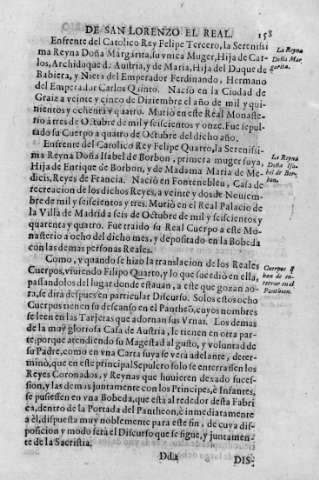 DE SAN LORENZO EL REAL. 158
Enfrente del Catolico Rey Felipe Tercero, la Serenissi
ma Reyna Doña Margarita, su vnica Muger, Hija de Car
los, Archiduque d. Austria, y de Maria, Hija del Duque de
Babiera, y Nieta del Emperador Ferdinando, Hermano
del Emperador Carlos Quinto. Nació en la Ciudad de
Graiz a veinte y cinco de Diziembre el año de mil y qui-
nientos y ochenta y quatro. Murió en este Real Monaste-
rio a tres de Octubre de mil y seiscientos y onze. Fue sepul-
tado su Cuerpo a quatro de Octubre del dicho año.
La Reyna
Doña Mar-
garita.
Enfrente del Catolico Rey Felipe Quarto, la Serenissi-
ma Reyna Doña Isabel de Borbon, primera muger suya,
Hija de Enrique de Borbon, y de Madama Maria de Me-
dicis, Reyes de Francia. Nació en Fontenebleu, Casa de
recreacion de los dichos Reyes, a veinte y dos de Nouiembre
de mil y seiscientos y tres. Murió en el Real Palacio de
la Villa de Madrid a seis de Octubre de mil y seiscientos y
quarenta y quatro. Fue traido su Real Cuerpo a este Mo-
nasterio a ocho del dicho mes, y depositado en la Bobeda
con las demas personas Reales.
La Reyna
Doña Isa-
bel de Bor-
bon.
Como, y quando se hizo la translacion de los Reales
Cuerpos, viuiendo Filipo Quarto, y lo que sucedió en ella,
passandolos del lugar donde estauan, a este que gozan ao-
ra, se dirá despues en particular Discurso. Solos estos ocho
Cuerpos tienen su descanso en el Pantheō, cuyos nombres
se leen en las Tarjetas que adornan sus Vrnas. Los demas
de la muy gloriosa Casa de Austria, le tienen en otra par-
te; porque atendiendo su Magestad al gusto, y voluntad de
su Padre, como en vna Carta suya se verá adelante, deter-
minò, que en este principal Sepulcro solo se enterrassen los
Reyes Coronados, y Reynas que huuieren dexado suces-
sion, y las demas juntamente con los Principes, è Infantes,
se pusiessen en vna Bobeda, que está al rededor desta Fabri
ca, dentro de la Portada del Pantheon, è inmediatamente
a èl, dispuesta muy noblemente para este fin, de cuya dis-
posicion y modo será el Discurso que se sigue, y juntamen-
te de la Sacristia.
Cuerpos q̄
han de en-
terrar en el
Pantheon.
DIS-